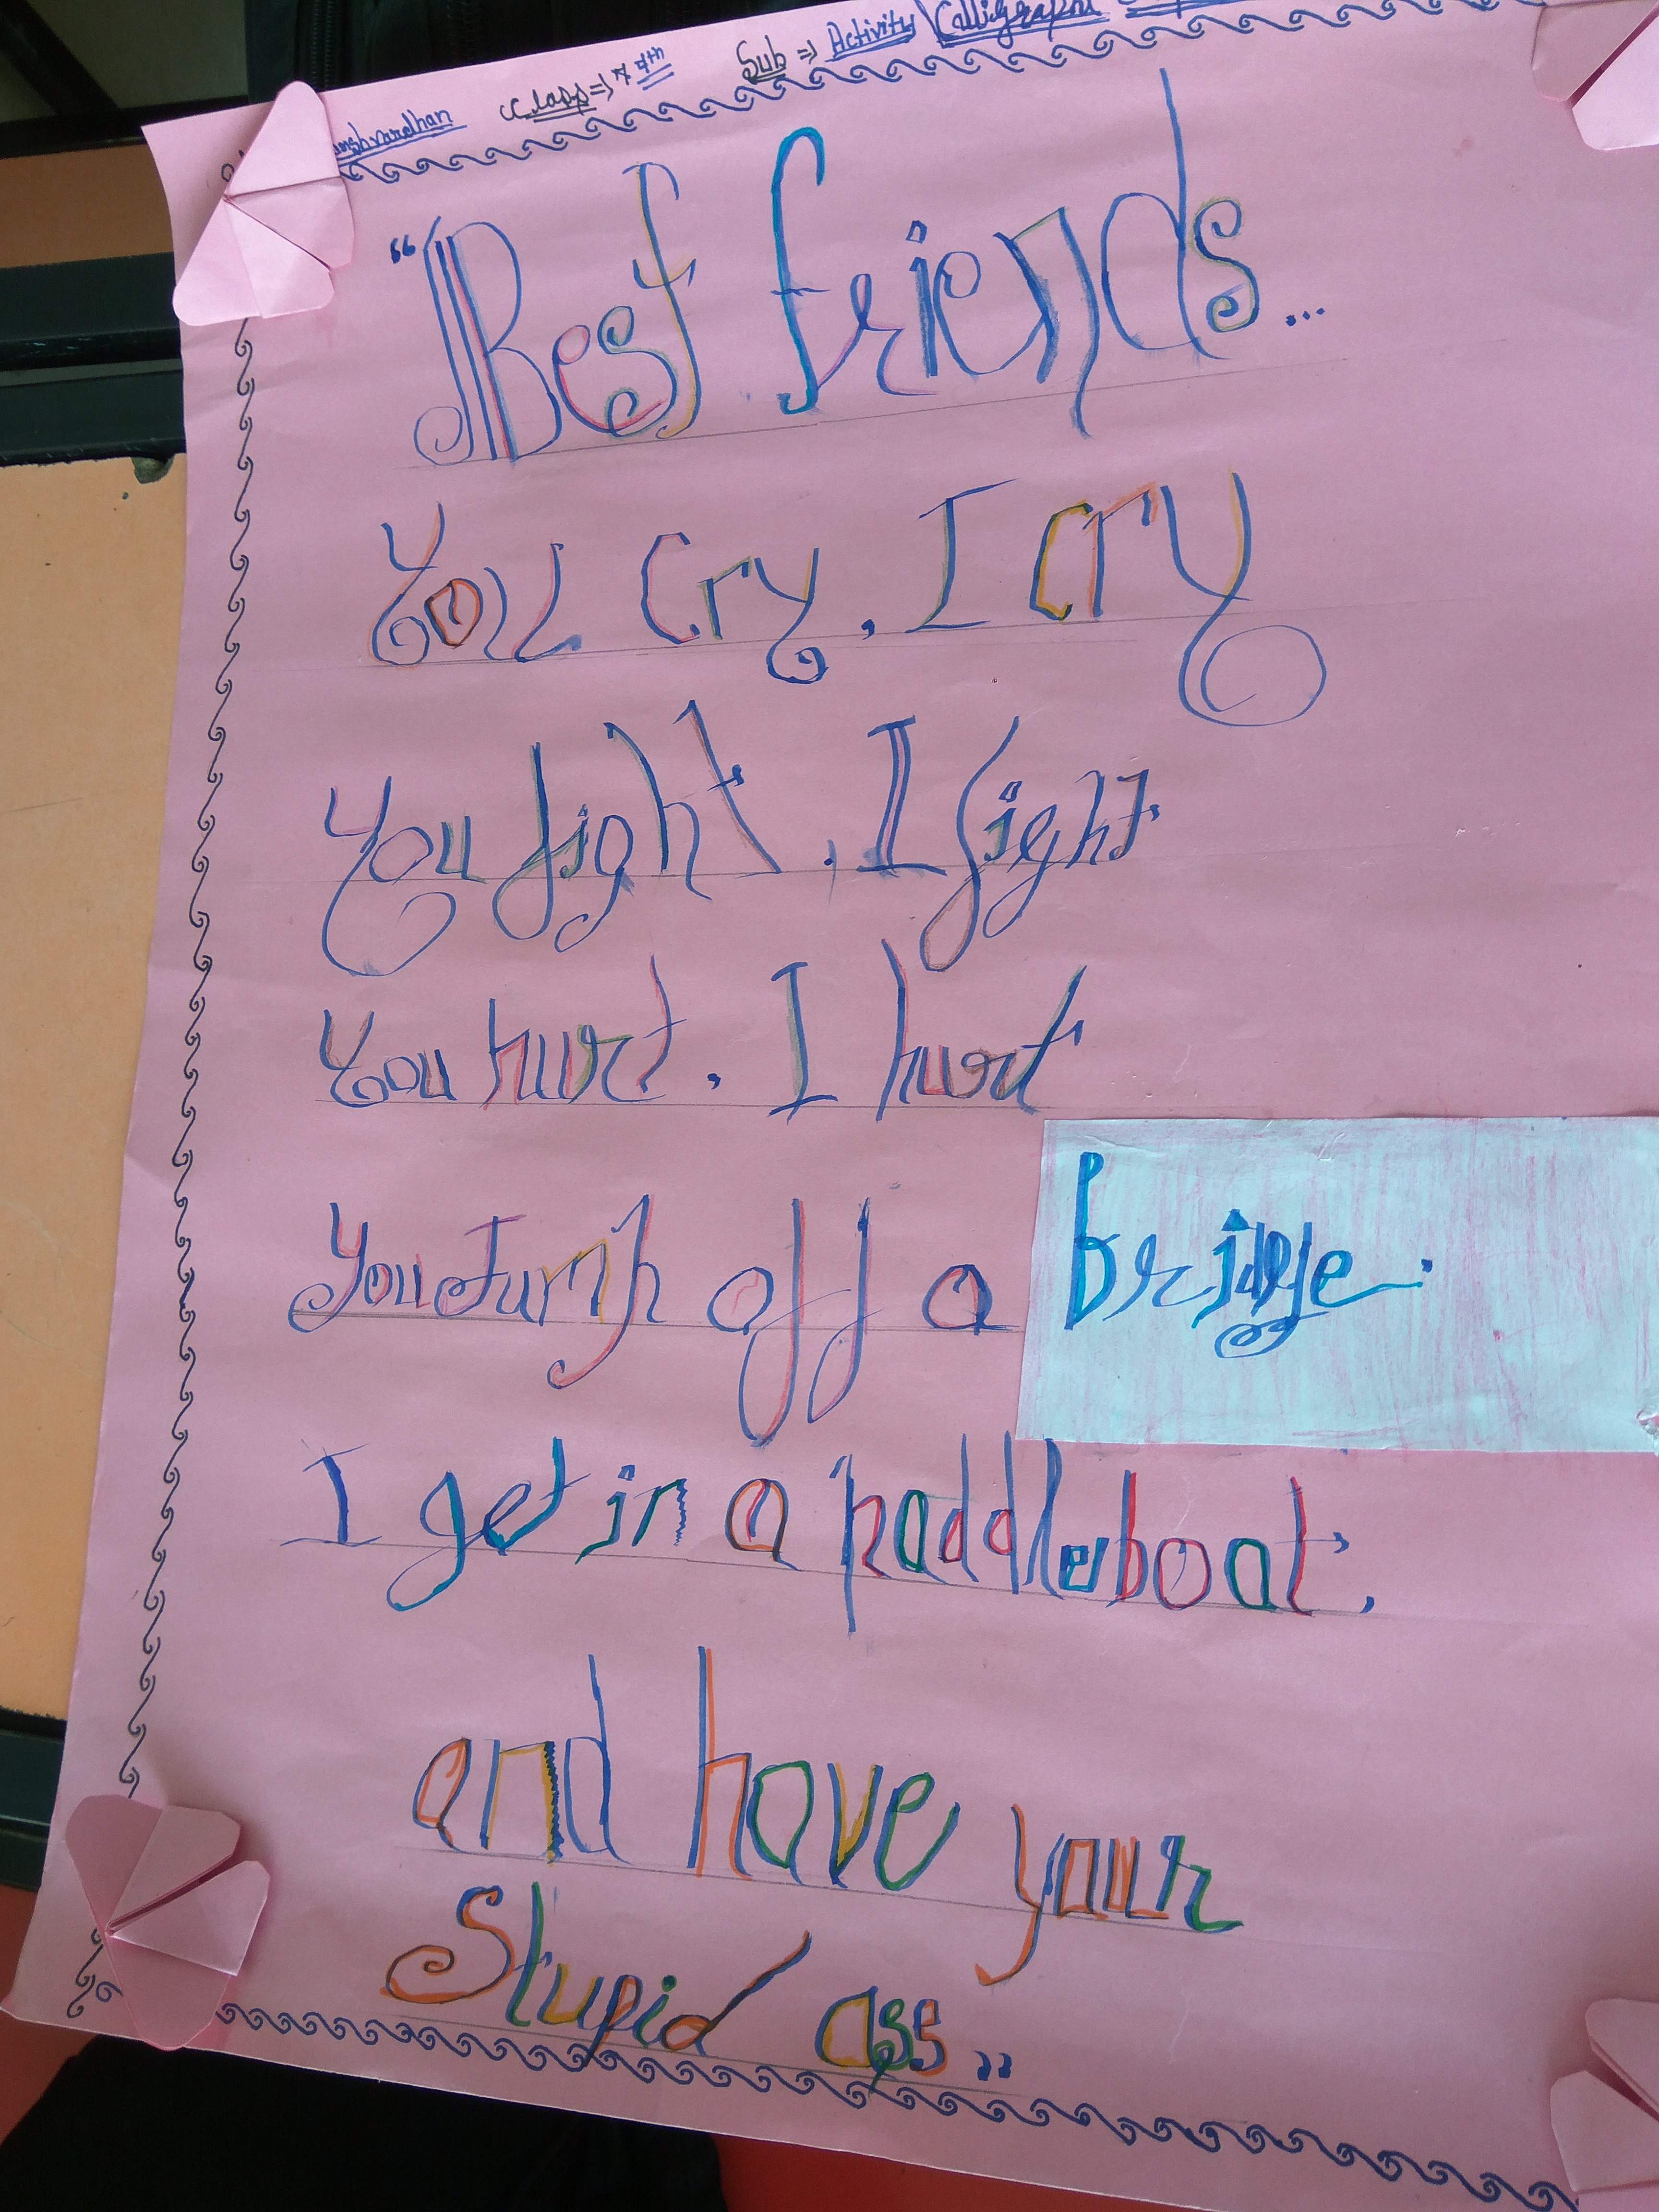 Class => 7th Sub => Activity Calligraphy
"Best friends...
You cry, I cry
You fight, I fight
You hurt, I hurt
You Jump off a bridge.
I get in a paddleboat,
and have your
Stupid ass.."